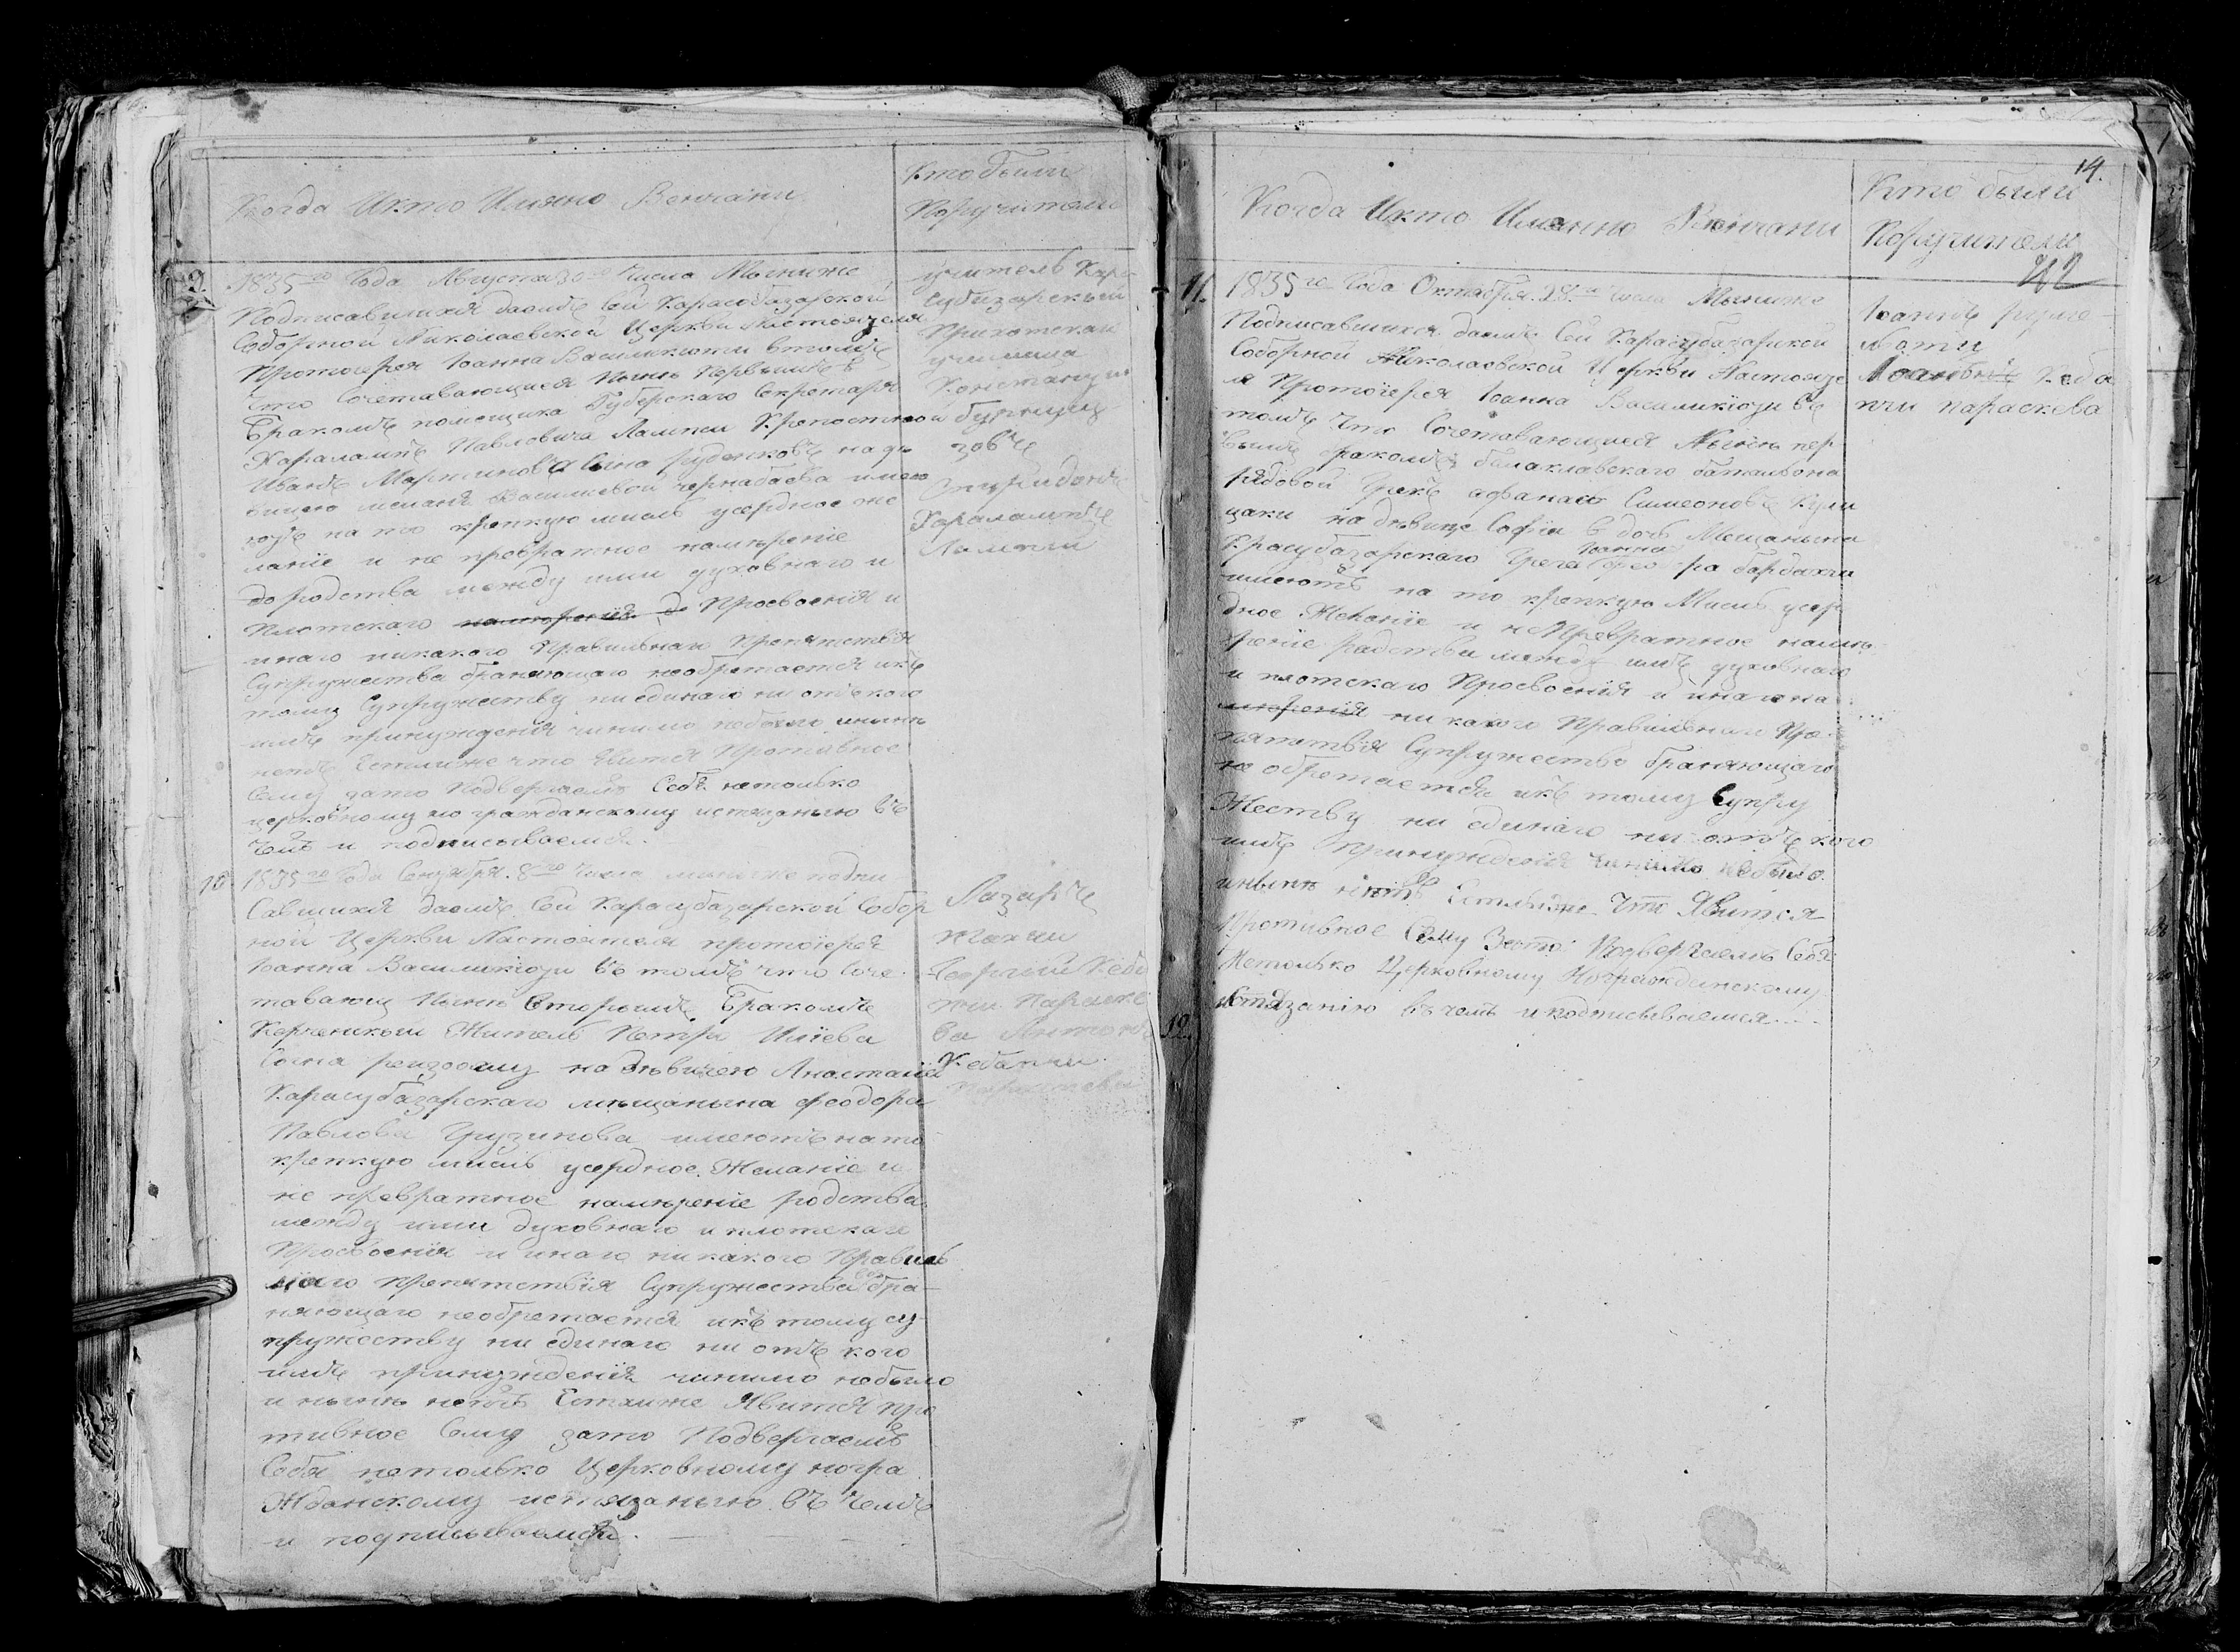 Когда Икто Имянно Венчани
Кто были
Поручители
9.
1835го Года Августа 30го Числа Мыниже
Подписавшихся даемъ Сей Карасубазарской
Соборной Николаевской Церкви Настоятеля
Протоиерея Иоанна Василикиоти втомъ
Что Сочетавающиеся Нынъ Первымъ
Бракомъ помещика Губерскаго Секретаря
Харалампъ Павловича Лампси Крепостной
Иванъ Мартиновъ Сына Руденковъ надъ
вицею Василиевой Чернабаева имею
юдъ на то крепкую мисль усердное же
лание и не превратное намърение
до родства между ими духовнаго и
Плотскаго намърения Просвоения и
инаго никакого Правильнаго Препятствия
Супружества браняющаго необретается икъ
тому Супружеству ни единаго ни отъ кого
имъ принуждения чинимо небыло инынъ
нетъ Естлиже что явится Противное
Сему зато Подвергаемъ Себя нетолько
церковному но гражданскому истязанию въ
чемъ и подписываемся.
учитель Кара
Субазарскый
Приходскаи
училища
Константин
Харалампъ
Лампси
10
1835го Года Сентября 8го Числа миниже подпи
Савшихся даемъ Сей Карасубазарской Собор
ной Церкви Настоятеля протоиерея
Иоанна Василикиози въ томъ что Соче
тавающ Нынъ Вторымъ Бракомъ
Керченский Житель Петри Илиева
Сына на дъвицею Анастасией
Карасубазарскаго мъщанина Феодора
Павлова Грузинова имеютъ на то
крепкую мисль усердное Желание и
не превратное намърение родства
между ими духовнаго и плотскаго
Просвоения и инаго никакого Правиль
наго препятствия Супружества бра-
няющаго необретается икъ тому су
пружеству ни единаго ни отъ кого
имъ принуждения чинимо небыло
и нынъ нетъ Естлиже Явится про
тивное Сему зато Подвергаемъ
Себя нетолько Церковному ногра
Жданскому истязанию въ чемъ
и подписываемся.
Лазаръ
Георгий Кеба
пчи Параске
ва Антонъ
Кебапчи
Параскева
14.
Когда Икто Имянно Венчани
Кто были
Поручители
22
11.
1835го Года Октабря 28го числа Мыниже
Подписавшихся даемъ Сей Карасубазарской
Соборной Николаевской Церкви Настояте
ля Протоиерея Иоанна Василикиози въ
томъ Что Сочетавающиеся Нынъ пер
вымъ бракомъ балаклавскаго баталиона
рядовой Грекъ афанас Симеоновъ Кули
цаки на дъвице София дочь Мещанина
Красубазарскаго Грека Иоанна
имеютъ на то крепкую Мисль усер
дное Желание и не Превратное намъ
рение родства между имъ духовнаго
и плотскаго Просвоения и инаго на
мърения ни какого Правилънаго Пре
пятствия Супружество браняющаго
не обретается икъ тому Супру
Жеству ни единаго ни отъ кого
имъ принуждения чинимо небыло
инынъ нетъ Естлиже Что Явится
Противное Сему Зато Подвергаемъ Себя
Нетолько Церковному Нограждинскому
истязанию въ чемъ и подписываемся
Иоаннъ
Кеба
пчи параскева
12.